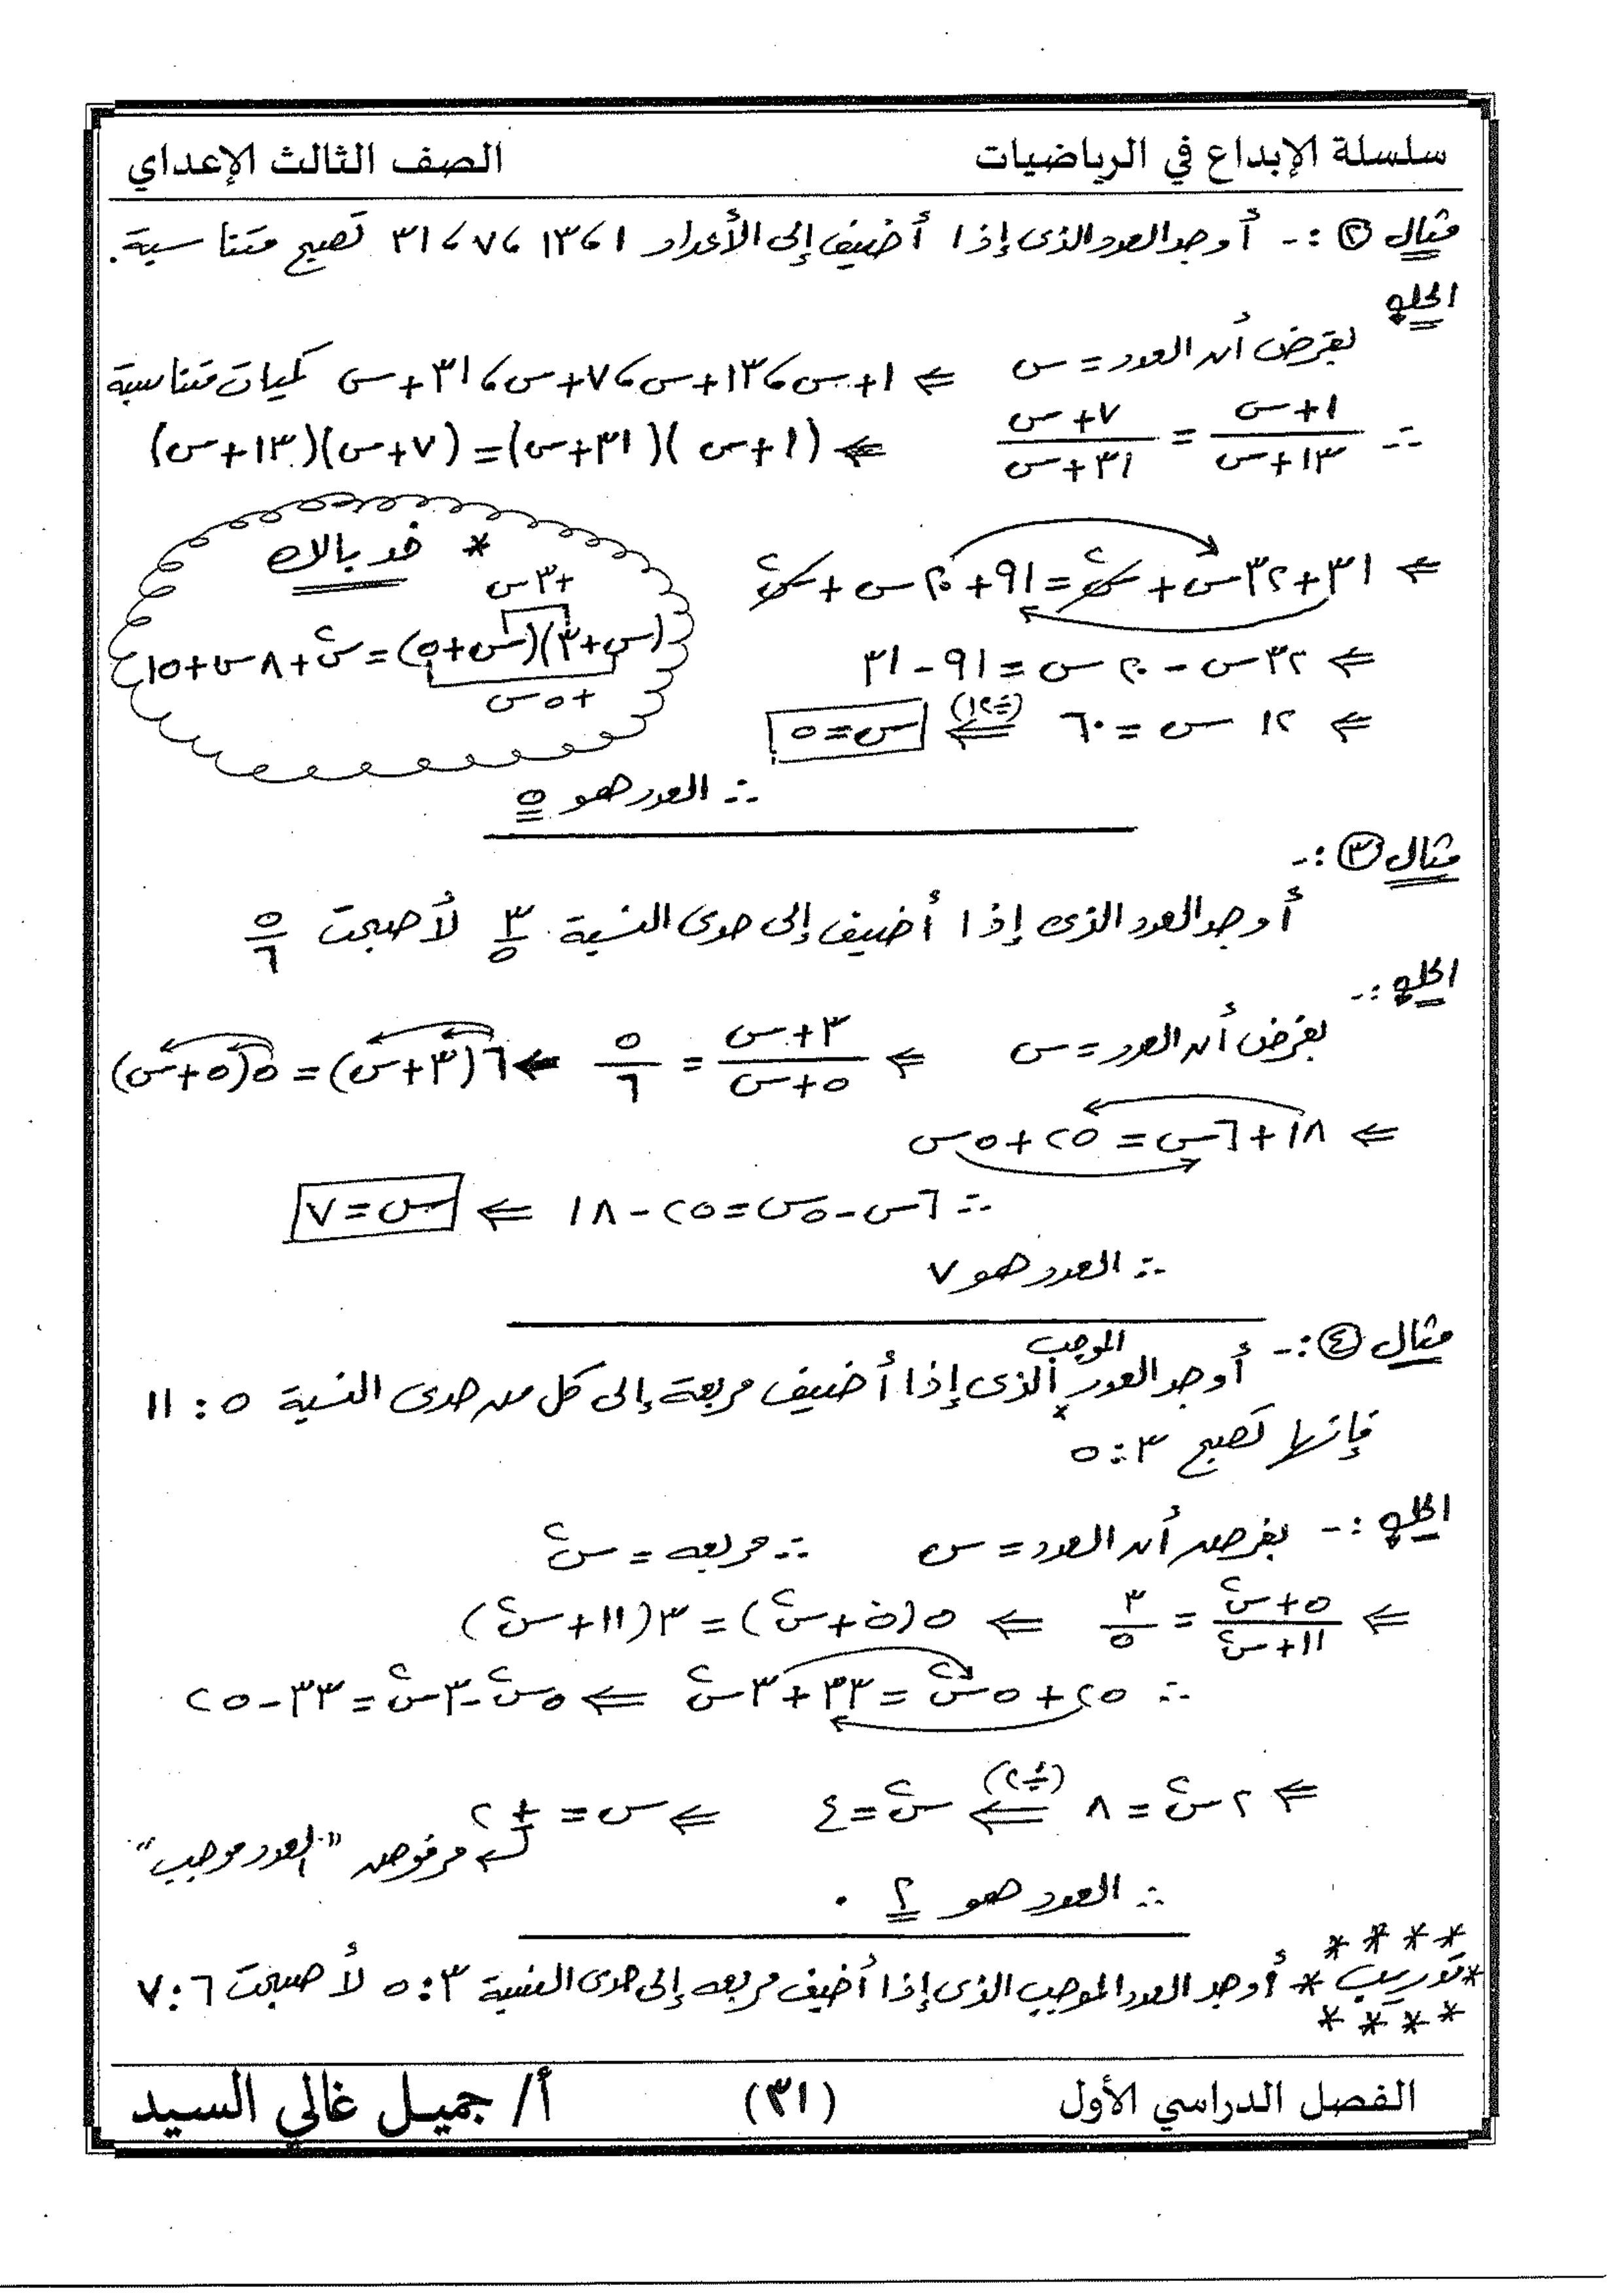 سلسلة الإبداع في الرياضيات
الصف الثالث الإعداي
مثال ②:- أوجد العدد الذى إذا أضيف إلى الأعداد ١ ، ١٣ ، ٧ ، ٣١ تصبح متناسبة.
الحل
بفرض أن العدد = س ⇐ ١+س ، ١٣+س ، ٧+س ، ٣١+س كميات متناسبة
∴ (١+س)/(١٣+س) = (٧+س)/(٣١+س) ⇐ (١+س)(٣١+س) = (٧+س)(١٣+س)
⇐ ٣١+٣٢س+س² = ٩١+٢٠س+س²
⇐ ٣٢س - ٢٠س = ٩١ - ٣١
⇐ ١٢س = ٦٠ ⇐ (÷١٢) س = ٥
* خد بالك
+٣س
(س+٣)(س+٥) = س²+٨س+١٥
+٥س
∴ العدد هو ٥
مثال ③:-
أوجد العدد الذى إذا أضيف إلى حدى النسبة ٣/٥ لأصبحت ٥/٦
الحل:-
بفرض أن العدد = س ⇐ (٣+س)/(٥+س) = ٥/٦ ⇐ ٦(٣+س) = ٥(٥+س)
⇐ ١٨+٦س = ٢٥+٥س
∴ ٦س-٥س = ٢٥-١٨ ⇐ س = ٧
∴ العدد هو ٧
مثال ④:- أوجد العدد الموجب الذى إذا أضيف مربعة إلى كل من حدى النسبة ٥ : ١١
فإنها تصبح ٣ : ٥
الحل:- بفرض أن العدد = س ∴ مربعه = س²
⇐ (٥+س²)/(١١+س²) = ٣/٥ ⇐ ٥(٥+س²) = ٣(١١+س²)
∴ ٢٥+٥س² = ٣٣+٣س² ⇐ ٥س²-٣س² = ٣٣-٢٥
⇐ ٢س² = ٨ ⇐ (÷٢) س² = ٤ ⇐ س = ± ٢
مرفوض "العدد موجب"
∴ العدد هو ٢ .
* * * *
* تدريب * أوجد العدد الموجب الذى إذا أضيف مربعه إلى حدى النسبة ٣ : ٥ لأصبحت ٦ : ٧
* * * *
الفصل الدراسي الأول
(٣١)
أ/ جميل غالي السيد